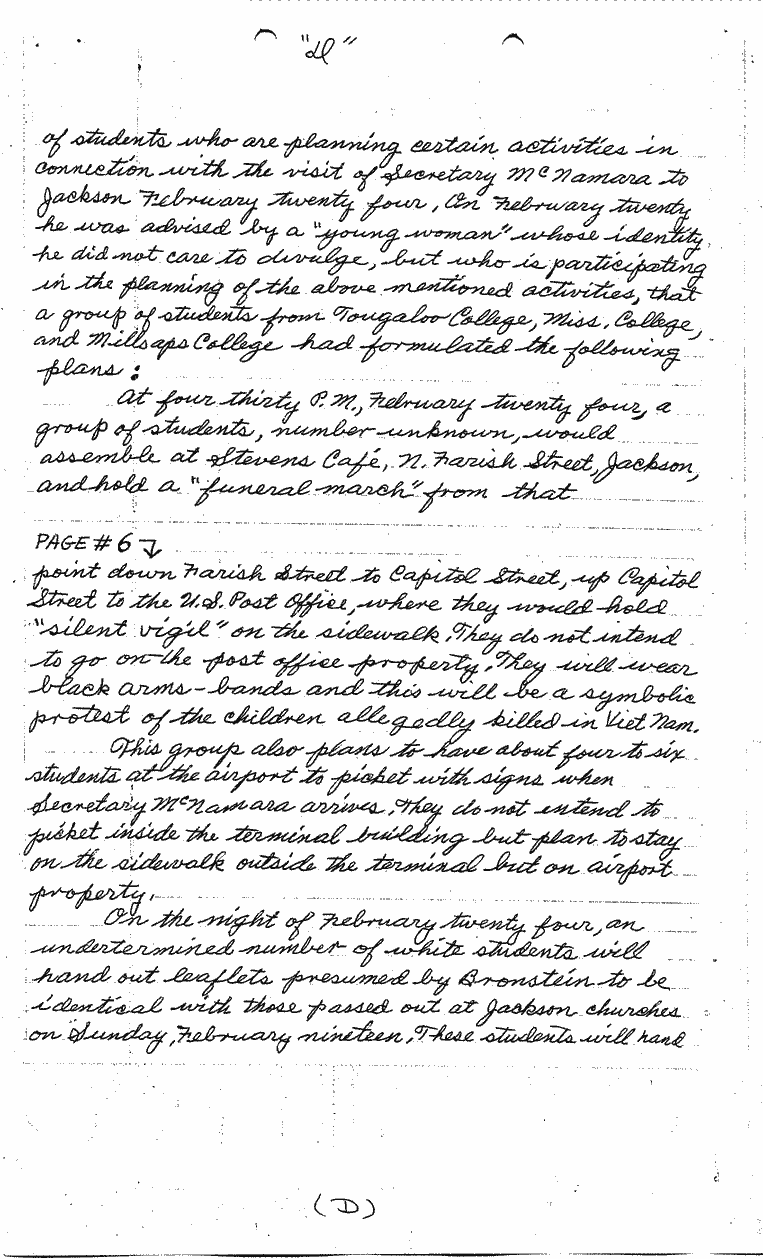 "D"
of students who are planning certain activities in
connection with the visit of Secretary McNamara to
Jackson February twenty four, On February twenty
he was advised by a "young woman" whose identity
he did not care to divulge, but who is participating
in the planning of the above mentioned activities, that
a group of students from Tougaloo College, Miss. College,
and Millsaps College had formulated the following
plans:
At four thirty P.M., February twenty four, a
group of students, number unknown, would
assemble at Stevens Café, N. Farish Street, Jackson,
and hold a "funeral march" from that
PAGE # 6
point down Farish Street to Capitol Street, up Capitol
Street to the U.S. Post Office, where they would hold
"silent vigil" on the sidewalk. They do not intend
to go on the post office property. They will wear
black arms-bands and this will be a symbolic
protest of the children allegedly killed in Viet Nam.
This group also plans to have about four to six
students at the airport to picket with signs when
Secretary McNamara arrives. They do not intend to
picket inside the terminal building but plan to stay
on the sidewalk outside the terminal but on airport
property.
On the night of February twenty four, an
undertermined number of white students will
hand out leaflets presumed by Bronstein to be
identical with those passed out at Jackson churches
on Sunday, February nineteen. These students will hand
(D)